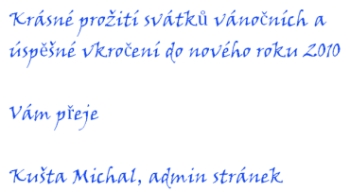 Krásné prožití svátků vánočních a
úspěšné vkročení do nového roku 2010
Vám přeje
Kušta Michal, admin stránek